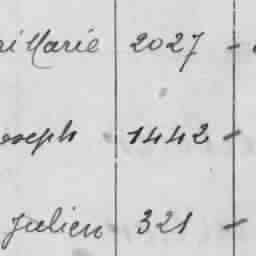 Marie 2027 -
oseph 1442 -
Julien 321 -